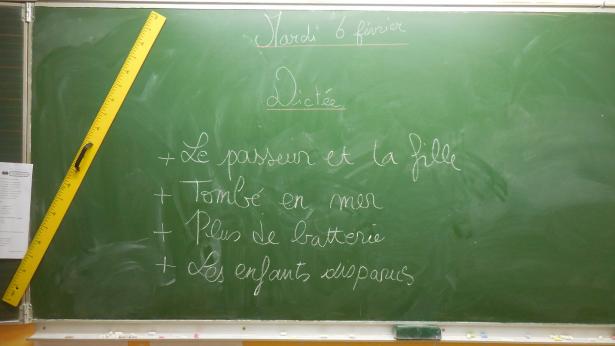 Mardi 6 février
Dictée
+ Le passeur et la fille
+ Tombé en mer
+ Plus de batterie
+ Les enfants disparus